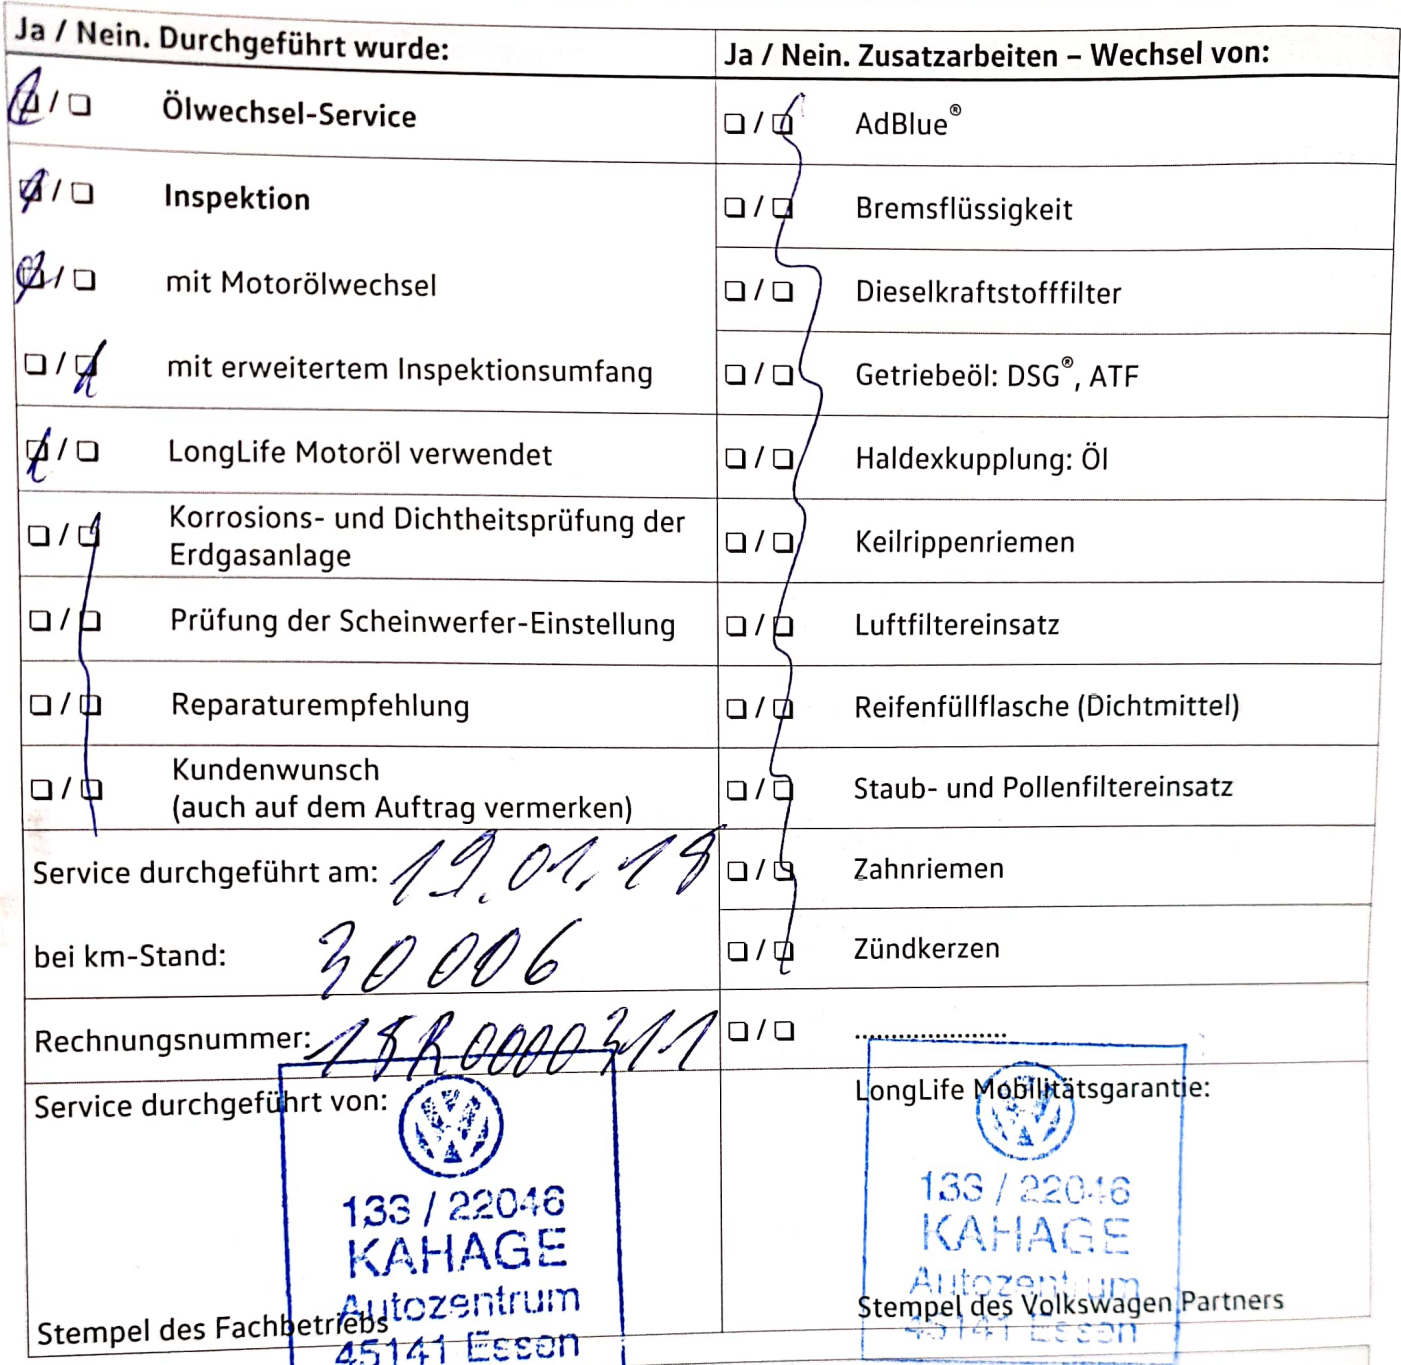 Ja / Nein. Durchgeführt wurde:
/ Ölwechsel-Service
/ Inspektion
/ mit Motorölwechsel
/ mit erweitertem Inspektionsumfang
/ LongLife Motoröl verwendet
/ Korrosions- und Dichtheitsprüfung der
Erdgasanlage
/ Prüfung der Scheinwerfer-Einstellung
/ Reparaturempfehlung
/ Kundenwunsch
(auch auf dem Auftrag vermerken)
Service durchgeführt am: 19.01.18
bei km-Stand: 30006
Rechnungsnummer: 18R0000311
Service durchgeführt von:
133 / 22046
KAHAGE
Autozentrum
45141 Essen
Stempel des Fachbetriebs
Ja / Nein. Zusatzarbeiten – Wechsel von:
/ AdBlue®
/ Bremsflüssigkeit
/ Dieselkraftstofffilter
/ Getriebeöl: DSG®, ATF
/ Haldexkupplung: Öl
/ Keilrippenriemen
/ Luftfiltereinsatz
/ Reifenfüllflasche (Dichtmittel)
/ Staub- und Pollenfiltereinsatz
/ Zahnriemen
/ Zündkerzen
/ ....................
LongLife Mobilitätsgarantie:
133 / 22046
KAHAGE
Autozentrum
45141 Essen
Stempel des Volkswagen Partners